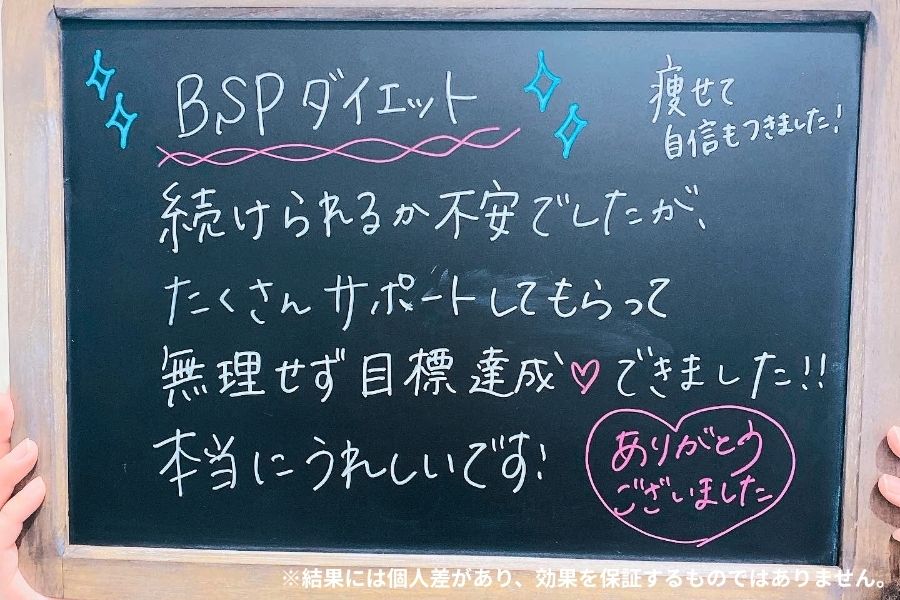 BSPダイエット
痩せて
自信もつきました!
続けられるか不安でしたが、
たくさんサポートしてもらって
無理せず目標達成♡できました!!
本当にうれしいです!
ありがとう
ございました
※結果には個人差があり、効果を保証するものではありません。